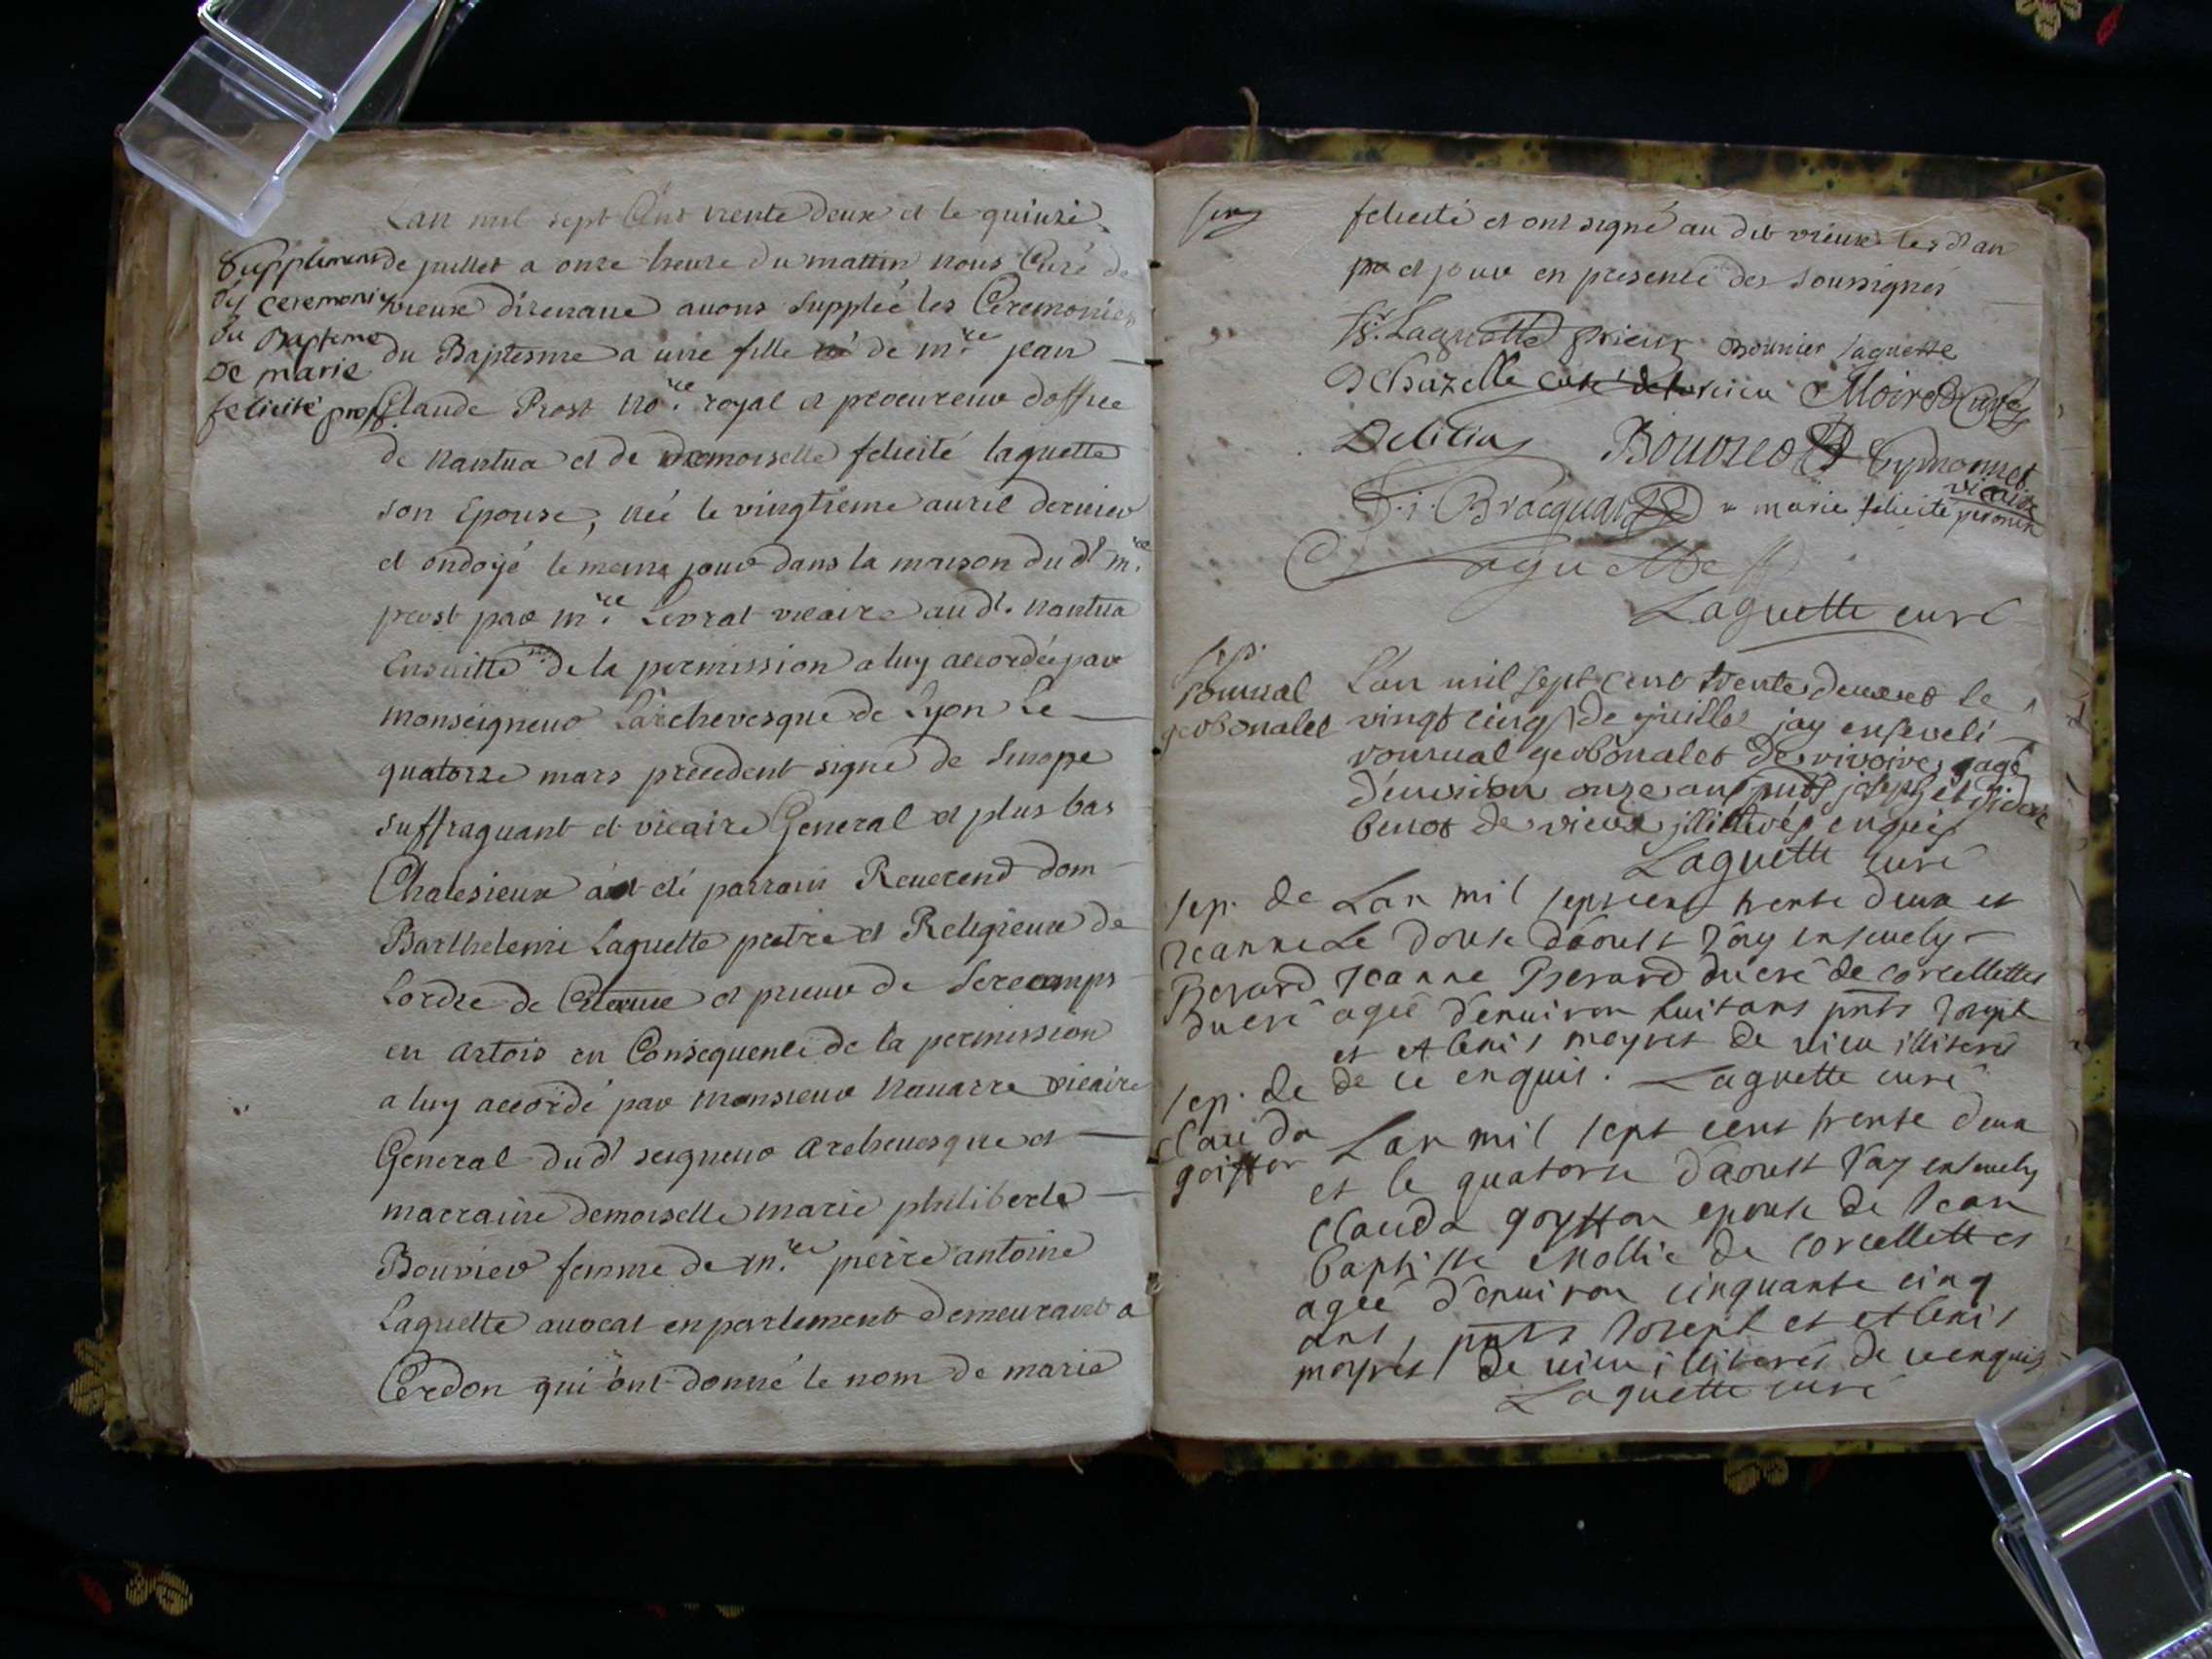 Lan mil sept Cent trente deux et le quinze
Supplement de juillet a onze heure du mattin nous Curé de
des ceremonies vieux dizenaue auons supplée les Ceremonies
du Baptesme du Baptesme a une fille de m.re jean
de marie
felicité prost Claude Prost no.re royal et procureur doffice
de nantua et de demoiselle felicité laguette
son Epouse, née le vingtieme auril dernier
et ondoyé le meme jour dans la maison du dt m.re
prost par m.re Levrat vicaire au dt. nantua
Ensuitte de la permission a luy accordée par
monseigneur Larchevesque de Lyon Le
quatorze mars precedent signé de Sinope
suffraguant et vicaire General et plus bas
Chalesieux a eté parrain Reuerend dom
Barthelemi Laguette pretre et Religieux de
Lordre de et prieur de
en artois en Consequence de la permission
a luy accordé par monsieur nauarre vicaire
General du dt seigneur archeuesque et
marraine demoiselle marie philiberte
Bouvier femme de m.re pierre antoine
Laguette auocat en parlement demeurant a
Cerdon qui ont donné le nom de marie
felicité et ont signé au dit vieux les dt an
et jour en presence des soussignés
Laguette prieur Bouvier laguette
Dchazelle curé
Delilia Bouvier
vicaire
Bracquard marie felicité
Laguette
Laguette curé
sep.
Lan mil sept cent trente deux et le
vingt cinq de juillet jay enseveli
de rivoire agé
denviron onze ans pnts joseph et
benot de vieux illitterés enquis
Laguette curé
sep. de Lan mil sept cent trente deux et
Jeanne Le douse daoust Jay ensevely
Berard Jeanne Berard ducré de corcellettes
ducré agée denuiron huit ans pnts Joseph
et Alexis meyret de vieu illiterés
de ce enquis. Laguette curé
sep. de
Clauda Lan mil sept cent trente deux
goiffon et le quatorse daoust Jay ensevely
Clauda goyffon epouse de Jean
Baptiste Mollie de Corcellettes
agée denuiron cinquante cinq
ans, pnts Joseph et Alexis
meyret de vieu illiterés de ce enquis
Laguette curé